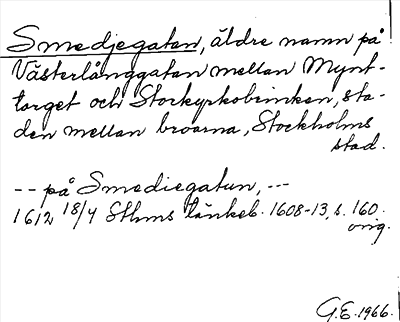 Smedjegatan, äldre namn på
Västerlånggatan mellan Mynt-
torget och Storkyrkobrinken, sta-
den mellan broarna, Stockholms
stad.
-- på Smediegatun, --
1612 18/4 Sthms tänkeb. 1608-13, s. 160.
orig.
G.E. 1966.